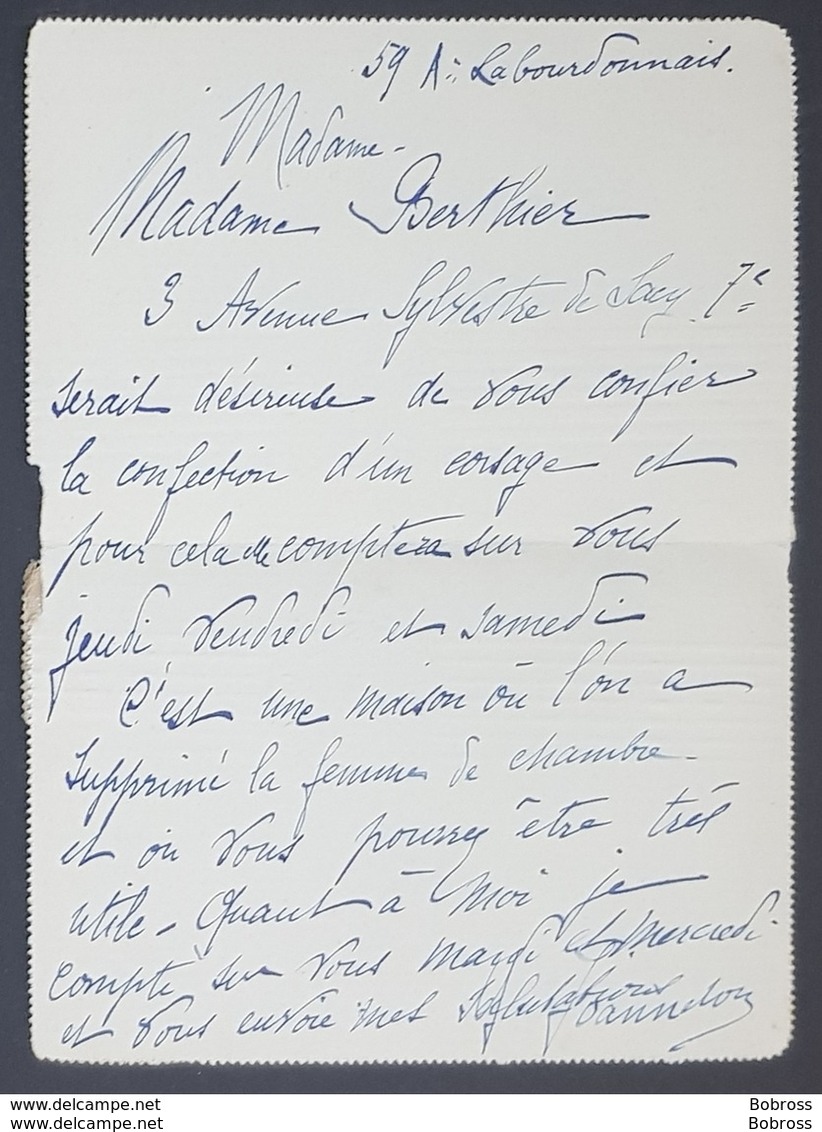 59 Av: Labourdonnais.
Madame -
Madame Berthier
3 Avenue Sylvestre de Sacy 7e
serait désireuse de vous confier
la confection d'un corsage et
pour cela elle comptera sur vous
jeudi vendredi et samedi
C'est une maison où l'on a
supprimé la femme de chambre -
et où vous pourrez être très
utile - Quant à moi je
compte sur vous mardi et mercredi
et vous envoie mes salutations
Bobross
Bobross